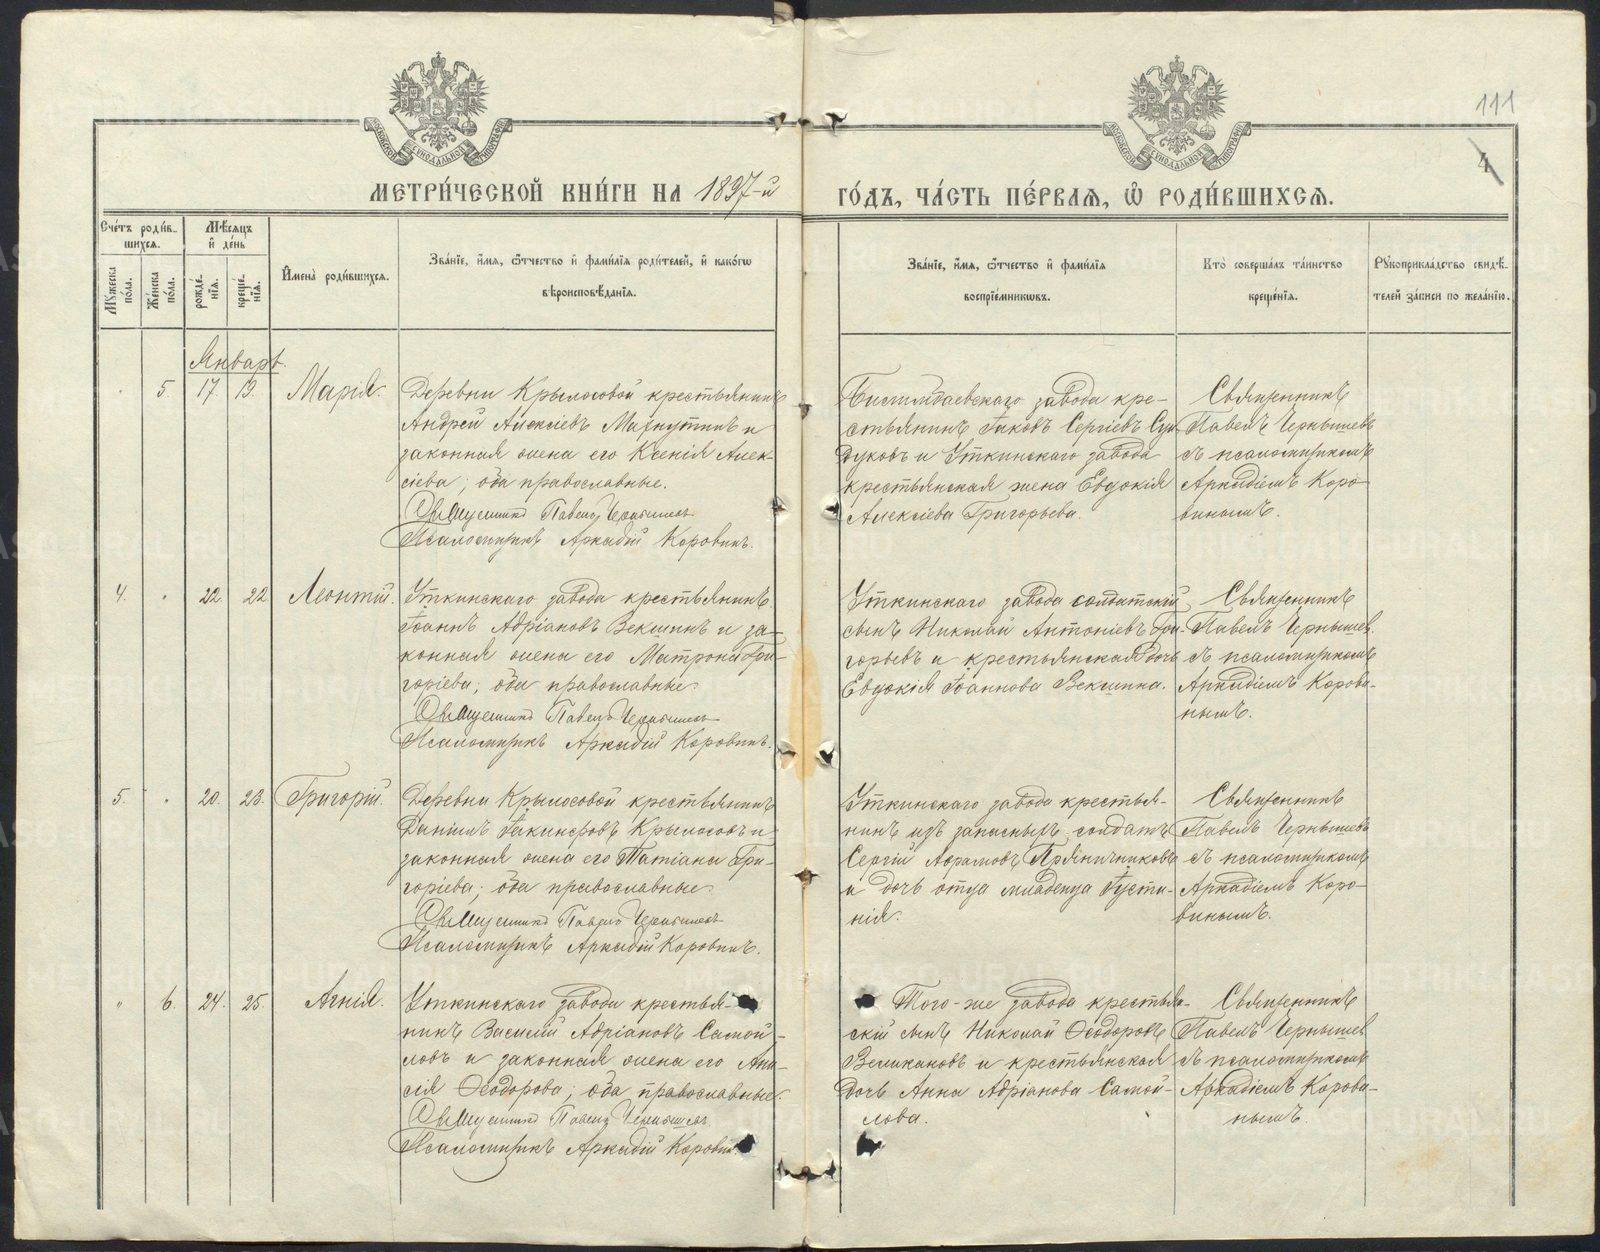 111
4
МОСКОВСКОЙ СУНОДАЛЬНОЙ ТИПОГРАФІИ
МОСКОВСКОЙ СУНОДАЛЬНОЙ ТИПОГРАФІИ
МЕТРИ́ЧЕСКОЙ КНИ́ГИ НА 1897-й
ГО́ДЪ, ЧА́СТЬ ПЕ́РВАѦ, Ѡ҆ РОДИ́ВШИХСѦ.
Сче́тъ роди́в-
шихсѧ.
Мꙋ́жеска по́ла.
Же́нска по́ла.
Мѣ́сѧцъ
и҆ де́нь
рожде́-
нїѧ.
креще́-
нїѧ.
И҆мена̀ роди́вшихсѧ.
Зва́нїе, и҆́мѧ, ѻ҆́тчество и҆ фами́лїѧ роди́телей, и҆ како́гѡ
вѣроисповѣ́данїѧ.
Зва́нїе, и҆́мѧ, ѻ҆́тчество и҆ фами́лїѧ
воспрїе́мникѡвъ.
Кто̀ соверша́лъ та́инство
креще́нїѧ.
Рꙋкоприкла́дство свидѣ́-
телей за́писи по жела́нїю.
Январь.
" 5. 17. 19. Марія.
Деревни Крылосовой крестьянинъ
Андрей Алексіевъ Махнутинъ и
законная жена его Ксенія Алек-
сіева; оба православные.
Священникъ Павелъ Чернышевъ
Псаломщикъ Аркадій Коровинъ.
Билимбаевскаго завода кре-
стьянинъ Іаковъ Сергіевъ Сун-
дуковъ и Уткинскаго завода
крестьянская жена Евдокія
Алексіева Григорьева.
Священникъ
Павелъ Чернышевъ
съ псаломщикомъ
Аркадіемъ Коро-
винымъ.
4. " 22. 22. Леонтій.
Уткинскаго завода крестьянинъ
Іоаннъ Адріановъ Векшинъ и за-
конная жена его Матрона Гри-
горіева; оба православные.
Священникъ Павелъ Чернышевъ
Псаломщикъ Аркадій Коровинъ.
Уткинскаго завода солдатскій
сынъ Николай Антоніевъ Гри-
горьевъ и крестьянская дочь
Евдокія Іоаннова Векшина.
Священникъ
Павелъ Чернышев
съ псаломщикомъ
Аркадіемъ Корови-
нымъ.
5. " 20. 23. Григорій.
Деревни Крылосовой крестьянинъ
Даніилъ Іакинфовъ Крылосовъ и
законная жена его Татіана Гри-
горіева; оба православные.
Священникъ Павелъ Чернышевъ
Псаломщикъ Аркадій Коровинъ.
Уткинскаго завода крестья-
нинъ изъ запасныхъ солдатъ
Сергій Аврамовъ Пряничниковъ
и дочь отца младенца Іусти-
нія.
Священникъ
Павелъ Чернышевъ
съ псаломщикомъ
Аркадіемъ Коро-
винымъ.
" 6. 24. 25. Агнія.
Уткинскаго завода крестья-
нинъ Василій Адріановъ Самой-
ловъ и законная жена его Ани-
сія Ѳеодорова; оба православные.
Священникъ Павелъ Чернышевъ
Псаломщикъ Аркадій Коровин
Того-же завода крестьян-
скій сынъ Николай Ѳеодоровъ
Великановъ и крестьянская
дочь Анна Адріанова Самой-
лова.
Священникъ
Павелъ Чернышев
съ псаломщикомъ
Аркадіемъ Корови-
нымъ.